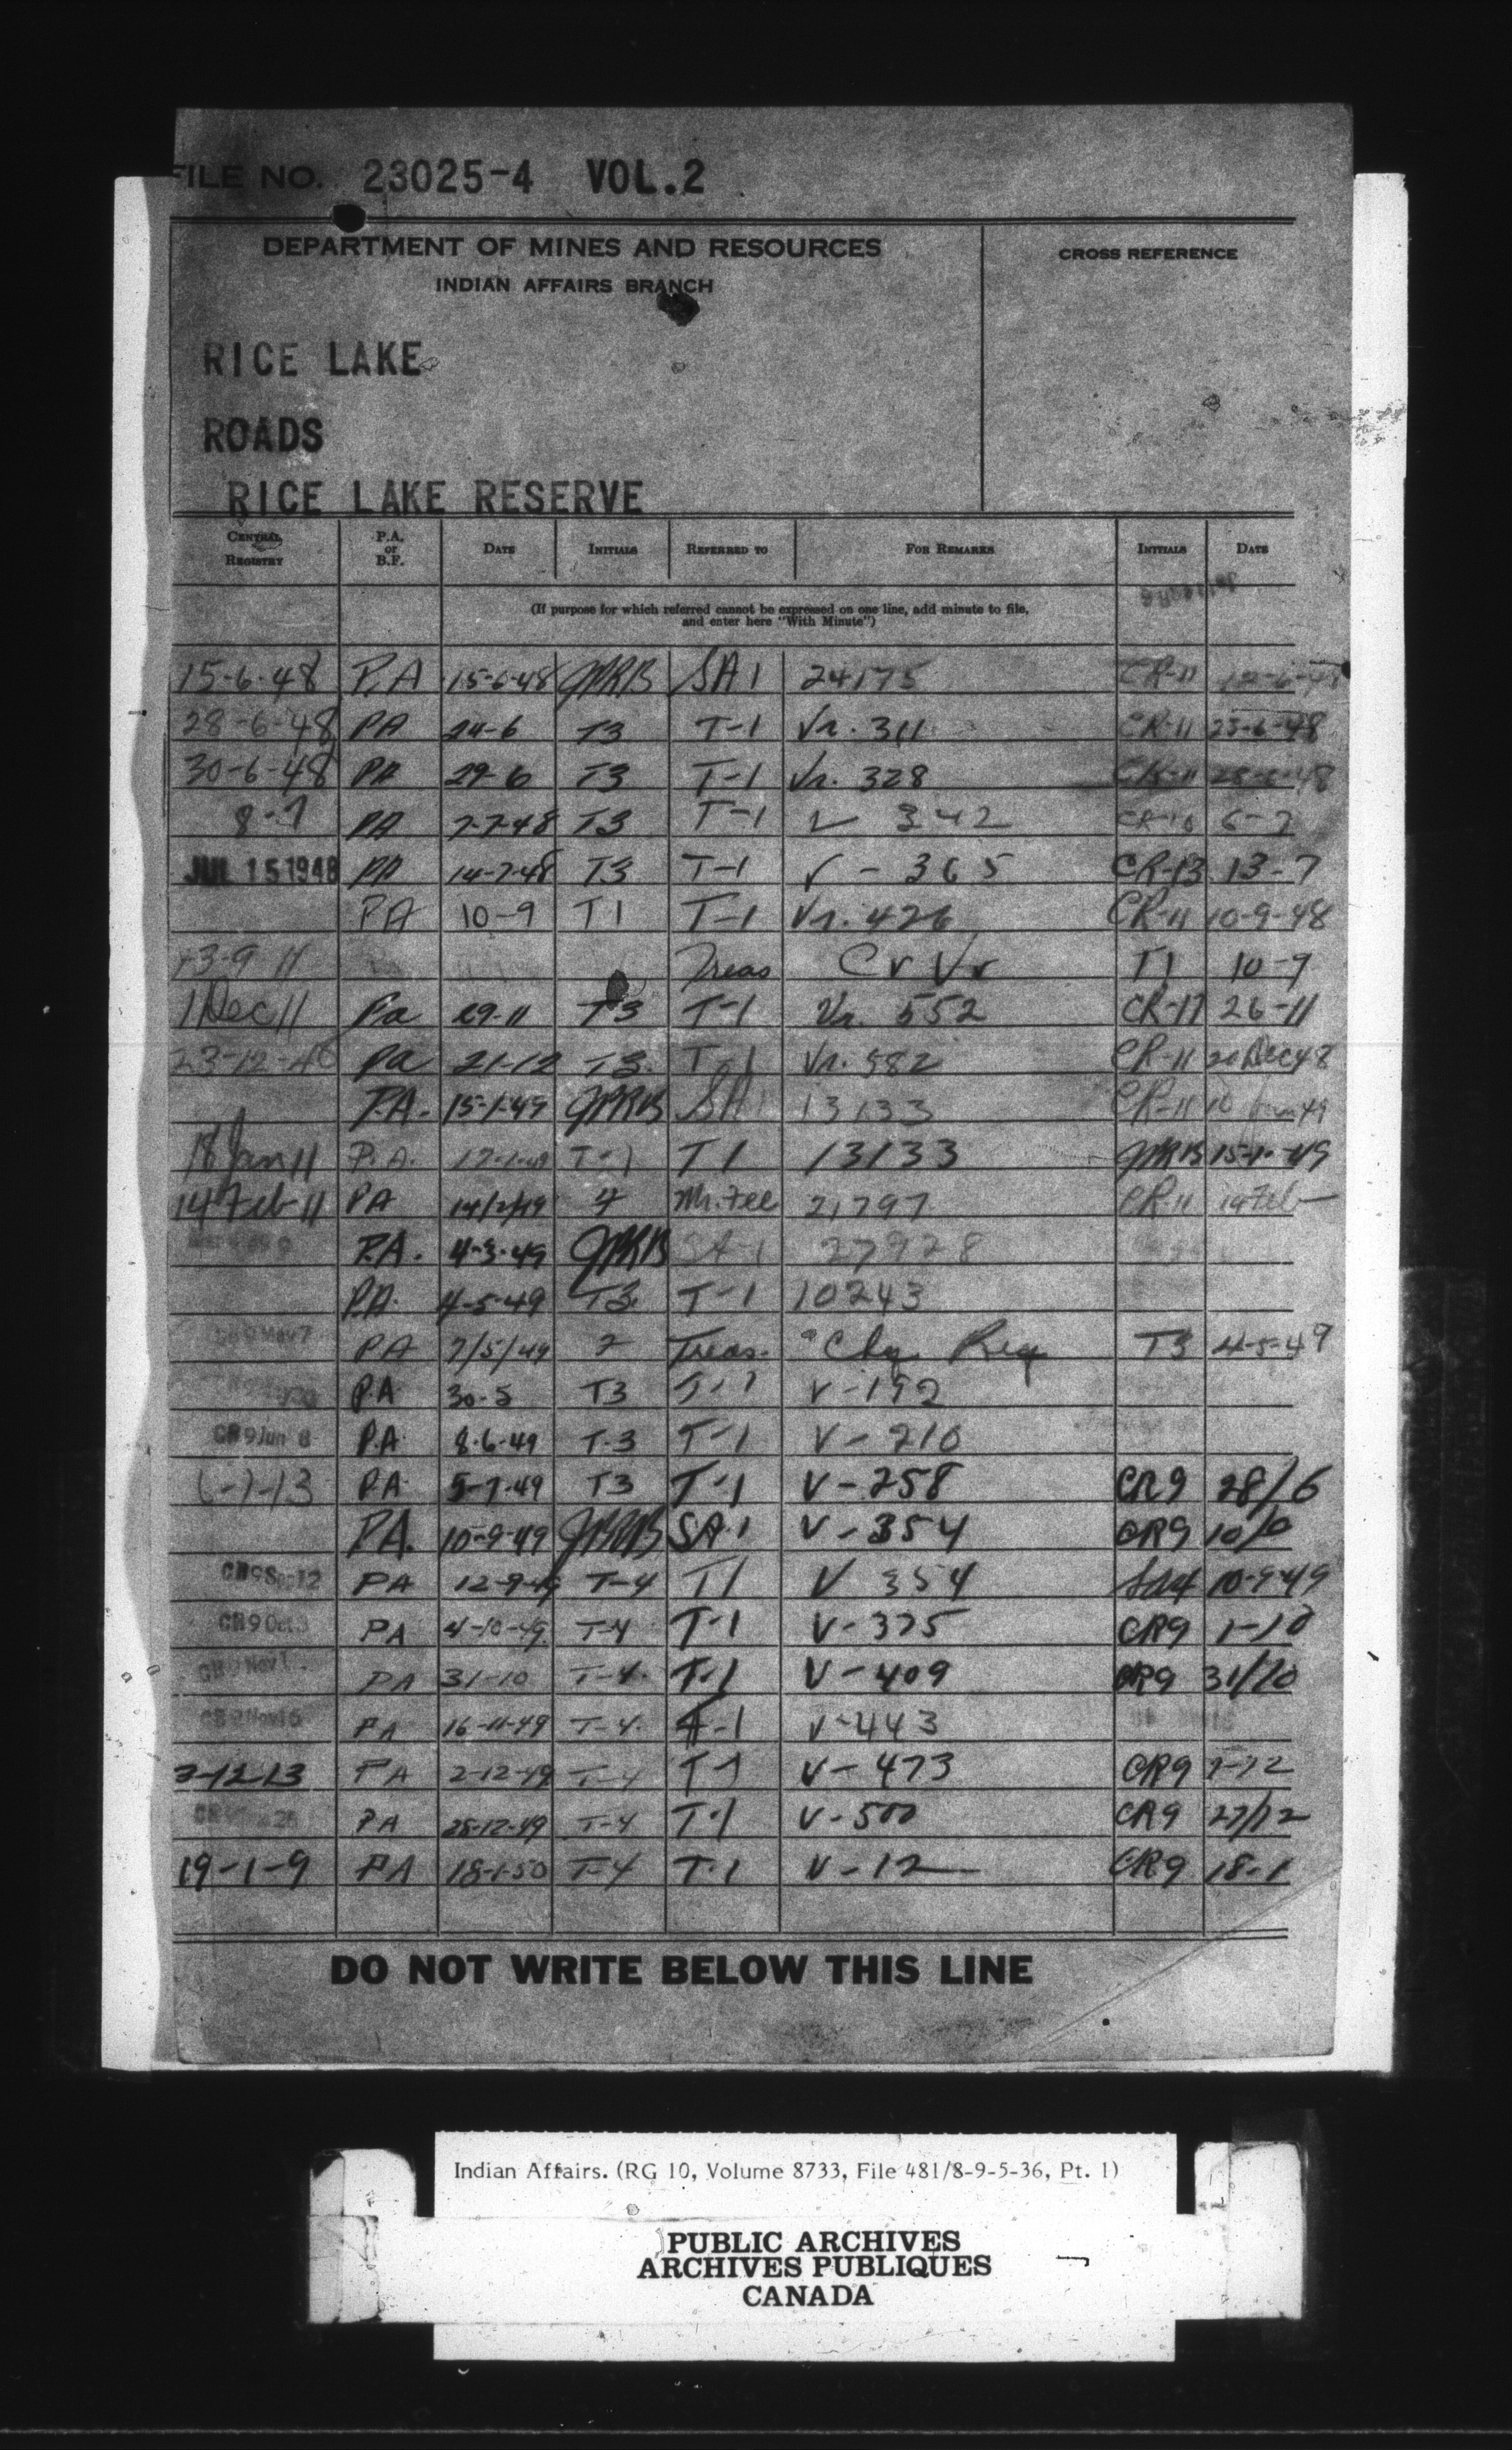 FILE NO. 23025-4 VOL.2
DEPARTMENT OF MINES AND RESOURCES
INDIAN AFFAIRS BRANCH
CROSS REFERENCE
RICE LAKE
ROADS
RICE LAKE RESERVE
CENTRAL REGISTRY P.A. or B.F. DATE INITIALS REFERRED TO FOR REMARKS INITIALS DATE
(If purpose for which referred cannot be expressed on one line, add minute to file,
and enter here "With Minute")
15-6-48 P.A 15-6-48 JPRB SA1 24175 CR-11 12-6-48
28-6-48 PA 24-6 T3 T-1 Vr. 311 CR-11 23-6-48
30-6-48 PA 29-6 T3 T-1 Vr. 328 CR-11 28-6-48
8-7 PA 7-7-48 T3 T-1 V 342 6-7
JUL 15 1948 PA 14-7-48 T3 T-1 V - 365 CR-13 13-7
PA 10-9 T1 T-1 Vr. 426 CR-11 10-9-48
13-9 11 Treas Cr Vr T1 10-9
1 Dec 11 Pa 29-11 T3 T-1 Vr. 552 CR-17 26-11
23-12-48 Pa 21-12 T3 T-1 Vr. 582 CR-11 20 Dec 48
P.A. 15-1-49 JPRB SA1 13133 CR-11 10 Jan 49
18 Jan 11 P.A. 17-1-49 T-1 T1 13133 JPRB 15-1-49
14 Feb 11 PA 14/2/49 4 Mr. Fee 21797 CR-11 14 Feb
P.A. 4-3-49 JPRB SA-1 27928
P.A. 4-5-49 T3 T-1 10243
May 7 PA 7/5/49 2 Treas. "Chq. Req T3 4-5-49
P.A 30-5 T3 T-1 V-192
CR9 Jun 8 P.A 8-6-49 T-3 T-1 V-210
6-7-13 P.A 5-7-49 T3 T-1 V-258 CR9 28/6
P.A. 10-9-49 JPRB SA-1 V-354 CR9 10/9
CR9 Sep 12 PA 12-9-49 T-4 T1 V 354 SA4 10-9-49
CR9 Oct 3 PA 4-10-49 T-4 T-1 V-375 CR9 1-10
CR9 Nov 1 PA 31-10 T-4 T-1 V-409 CR9 31/10
CR9 Nov 16 PA 16-11-49 T-4 V-443
3-12-13 PA 2-12-49 T-4 T-1 V-473 CR9
PA 28-12-49 T-4 T-1 V-500 CR9 27/12
19-1-9 PA 18-1-50 T-4 T-1 V-12 CR9 18-1
DO NOT WRITE BELOW THIS LINE
Indian Affairs. (RG 10, Volume 8733, File 481/8-9-5-36, Pt. 1)
PUBLIC ARCHIVES
ARCHIVES PUBLIQUES
CANADA